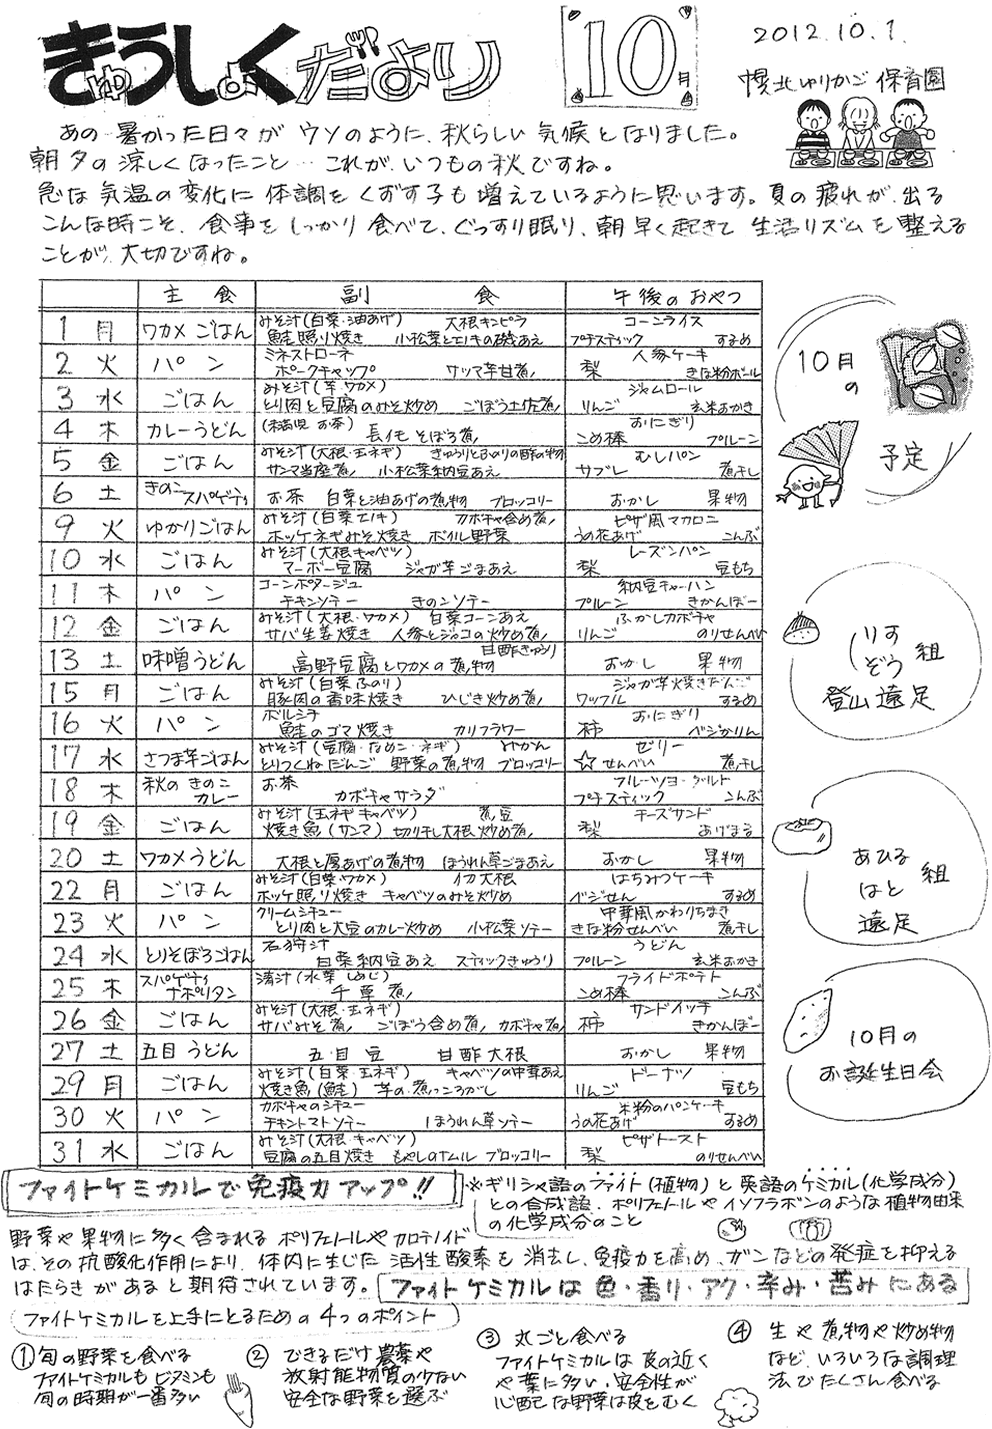 きゅうしょくだより
10月
2012.10.1
幌北ゆりかご保育園
あの暑かった日々がウソのように、秋らしい気候となりました。
朝夕の涼しくなったこと… これが、いつもの秋ですね。
急な気温の変化に体調をくずす子も増えているように思います。夏の疲れが出る
こんな時こそ、食事をしっかり食べて、ぐっすり眠り、朝早く起きて生活リズムを整える
ことが大切ですね。
主食 副食 午後のおやつ
1 月 ワカメごはん みそ汁(白菜・油あげ) 大根キンピラ 鮭照り焼き 小松菜とエノキの磯あえ コーンライス プチスティック するめ
2 火 パン ミネストローネ ポークチャップ サツマ芋甘煮 人参ケーキ 梨 きな粉ボール
3 水 ごはん みそ汁(芋・ワカメ) とり肉と豆腐のみそ炒め ごぼう土佐煮 ジャムロール りんご 玄米おかき
4 木 カレーうどん お茶) 長イモそぼろ煮 おにぎり こめ棒 プルーン
5 金 ごはん みそ汁(大根・玉ネギ) きゅうりとふのりの酢の物 サンマ当座煮 小松菜納豆あえ むしパン サブレ 煮干し
6 土 きのこスパゲティ お茶 白菜と油あげの煮物 ブロッコリー おかし 果物
9 火 ゆかりごはん みそ汁(白菜・エノキ) カボチャ含め煮 ホッケネギみそ焼き ボイル野菜 ピザ風マカロニ うの花あげ こんぶ
10 水 ごはん みそ汁(大根・キャベツ) マーボー豆腐 ジャガ芋ごまあえ レーズンパン 梨 豆もち
11 木 パン コーンポタージュ チキンソテー きのこソテー 納豆チャーハン プルーン きかんぼー
12 金 ごはん みそ汁(大根・ワカメ) 白菜コーンあえ サバ生姜焼き 人参とジャコの炒め煮 ふかしカボチャ りんご のりせんべい
13 土 味噌うどん 甘酢きゅうり 高野豆腐とワカメの煮物 おかし 果物
15 月 ごはん みそ汁(白菜・ふのり) 豚肉の香味焼き ひじき炒め煮 ジャガ芋焼きだんご ワッフル するめ
16 火 パン ボルシチ 鮭のゴマ焼き カリフラワー おにぎり 柿 ベジかりん
17 水 さつま芋ごはん みそ汁(豆腐・なめこ・ネギ) みかん とりつくねだんご 野菜の煮物 ブロッコリー ゼリー ☆せんべい 煮干し
18 木 秋のきのこカレー お茶 カボチャサラダ フルーツヨーグルト プチスティック こんぶ
19 金 ごはん みそ汁(玉ネギ・キャベツ) 煮豆 焼き魚(サンマ) 切り干し大根炒め煮 チーズサンド 梨 あげまる
20 土 ワカメうどん 大根と厚あげの煮物 ほうれん草ごまあえ おかし 果物
22 月 ごはん みそ汁(白菜・ワカメ) イカ大根 ホッケ照り焼き キャベツのみそ炒め はちみつケーキ ベジせん するめ
23 火 パン クリームシチュー とり肉と大豆のカレー炒め 小松菜ソテー 中華風かわりちまき きな粉せんべい 煮干し
24 水 とりそぼろごはん 石狩汁 白菜納豆あえ スティックきゅうり うどん プルーン 玄米おかき
25 木 スパゲティナポリタン 清汁(水菜・しめじ) 千草煮 フライドポテト こめ棒 こんぶ
26 金 ごはん みそ汁(大根・玉ネギ) サバみそ煮 ごぼう含め煮 カボチャ煮 サンドイッチ 柿 きかんぼー
27 土 五目うどん 五目豆 甘酢大根 おかし 果物
29 月 ごはん みそ汁(白菜・玉ネギ) キャベツの中華あえ 焼き魚(鮭) 芋の煮っころがし ドーナツ りんご 豆もち
30 火 パン カボチャのシチュー チキントマトソテー ほうれん草ソテー 米粉のパンケーキ うの花あげ するめ
31 水 ごはん みそ汁(大根・キャベツ) 豆腐の五目焼き もやしのナムル ブロッコリー ピザトースト 梨 のりせんべい
10月
の
予定
りす
ぞう 組
登山遠足
あひる
はと 組
遠足
10月の
お誕生日会
ファイトケミカルで免疫力アップ!!
※ギリシャ語のファイト(植物)と英語のケミカル(化学成分)
との合成語。ポリフェノールやイソフラボンのような植物由来
の化学成分のこと
野菜や果物に多く含まれるポリフェノールやカロテノイド
は、その抗酸化作用により、体内に生じた活性酸素を消去し、免疫力を高め、ガンなどの発症を抑える
はたらきがあると期待されています。
ファイトケミカルは色・香り・アク・辛み・苦みにある
ファイトケミカルを上手にとるための4つのポイント
①旬の野菜を食べる
ファイトケミカルもビタミンも
旬の時期が一番多い
②できるだけ農薬や
放射能物質の少ない
安全な野菜を選ぶ
③丸ごと食べる
ファイトケミカルは皮の近く
や葉に多い。安全性が
心配な野菜は皮をむく
④生や煮物や炒め物
など、いろいろな調理
法でたくさん食べる